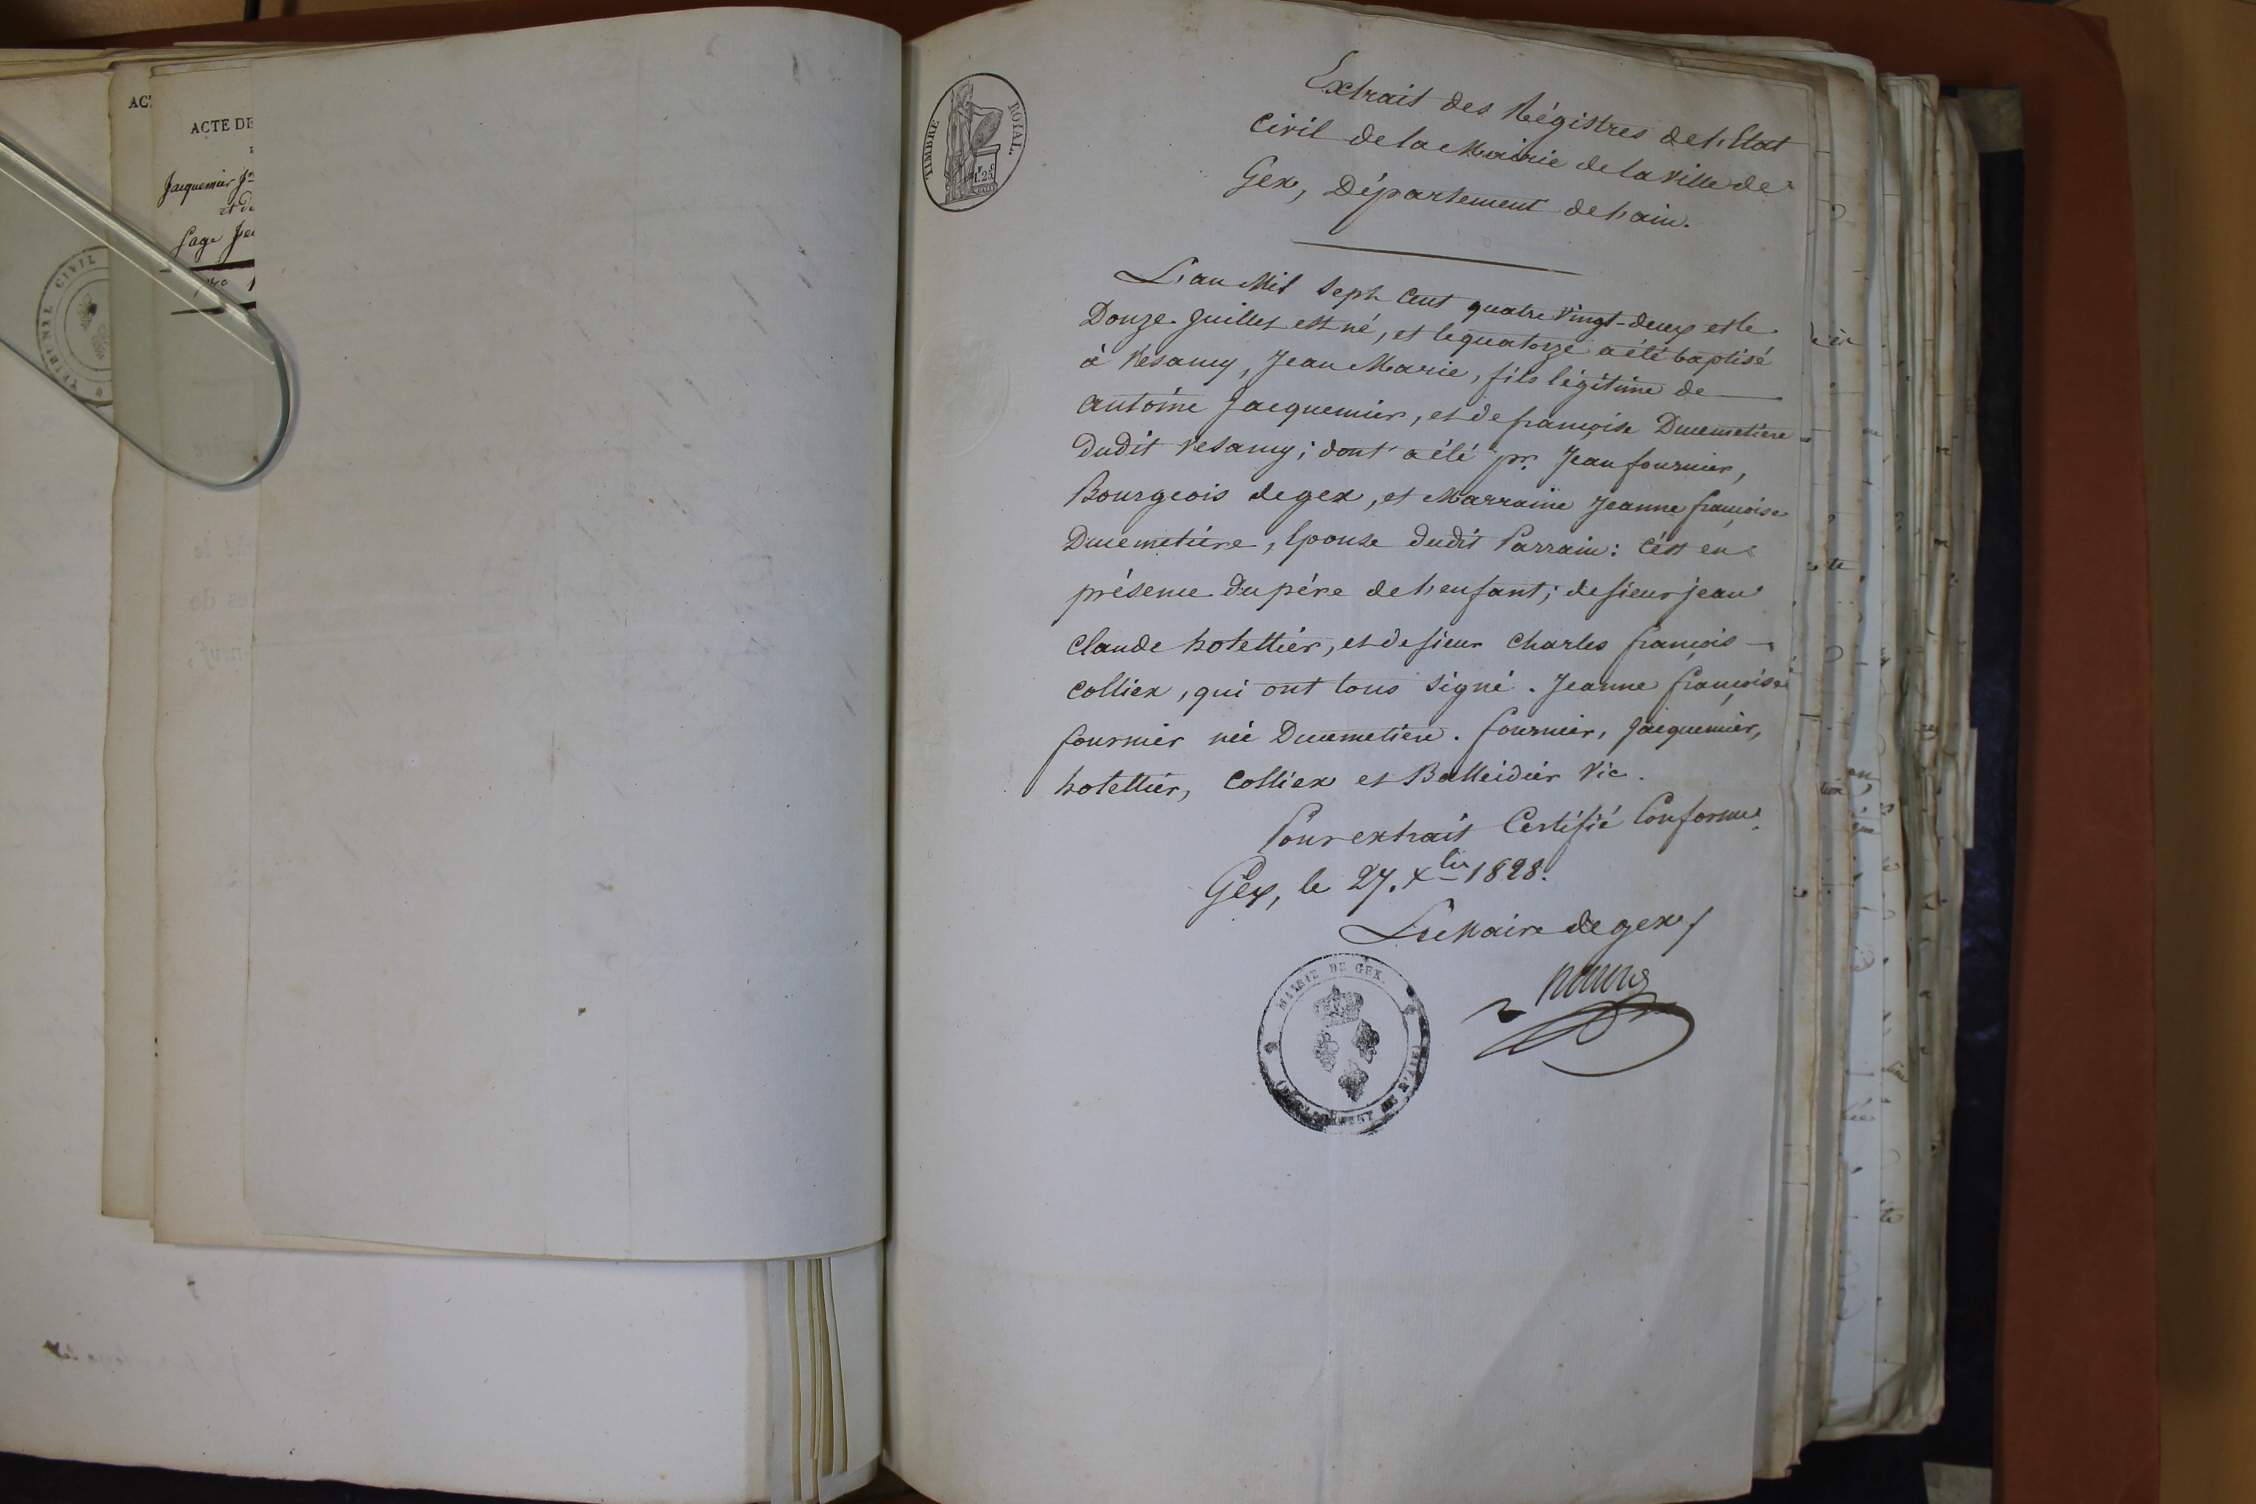 ACTE DE
Jacquemier Jn
et de
TRIBUNAL CIVIL
TIMBRE ROYAL.
1.25
Extrait des Régistres de l'Etat
Civil de la Mairie de la Ville de
Gex, Département de l'ain.
L'an Mil Sept Cent quatre Vingt-deux et le
Douze Juillet est né, et le quatorze a été baptisé
à Vesancy, Jean Marie, fils légitime de
antoine Jacquemier, et de françoise Ducemetière
dudit Vesancy; dont a été pr. Jean fournier,
Bourgeois de gex, et Marraine Jeanne françoise
Ducemetière, Epouse dudit Parrain: c'est en
présence du père de l'enfant; de sieur jean
claude hotellier, et de sieur Charles françois
colliex, qui ont tous signé. Jeanne françoise
fournier née Ducemetière. fournier, Jacquemier,
hotellier, Colliex et Balleidier Vic.
Pour extrait Certifié Conforme
Gex, le 27. Xbre 1828.
Le Maire de gex,
MAIRIE DE GEX.
(DÉPARTEMENT DE L'AIN)